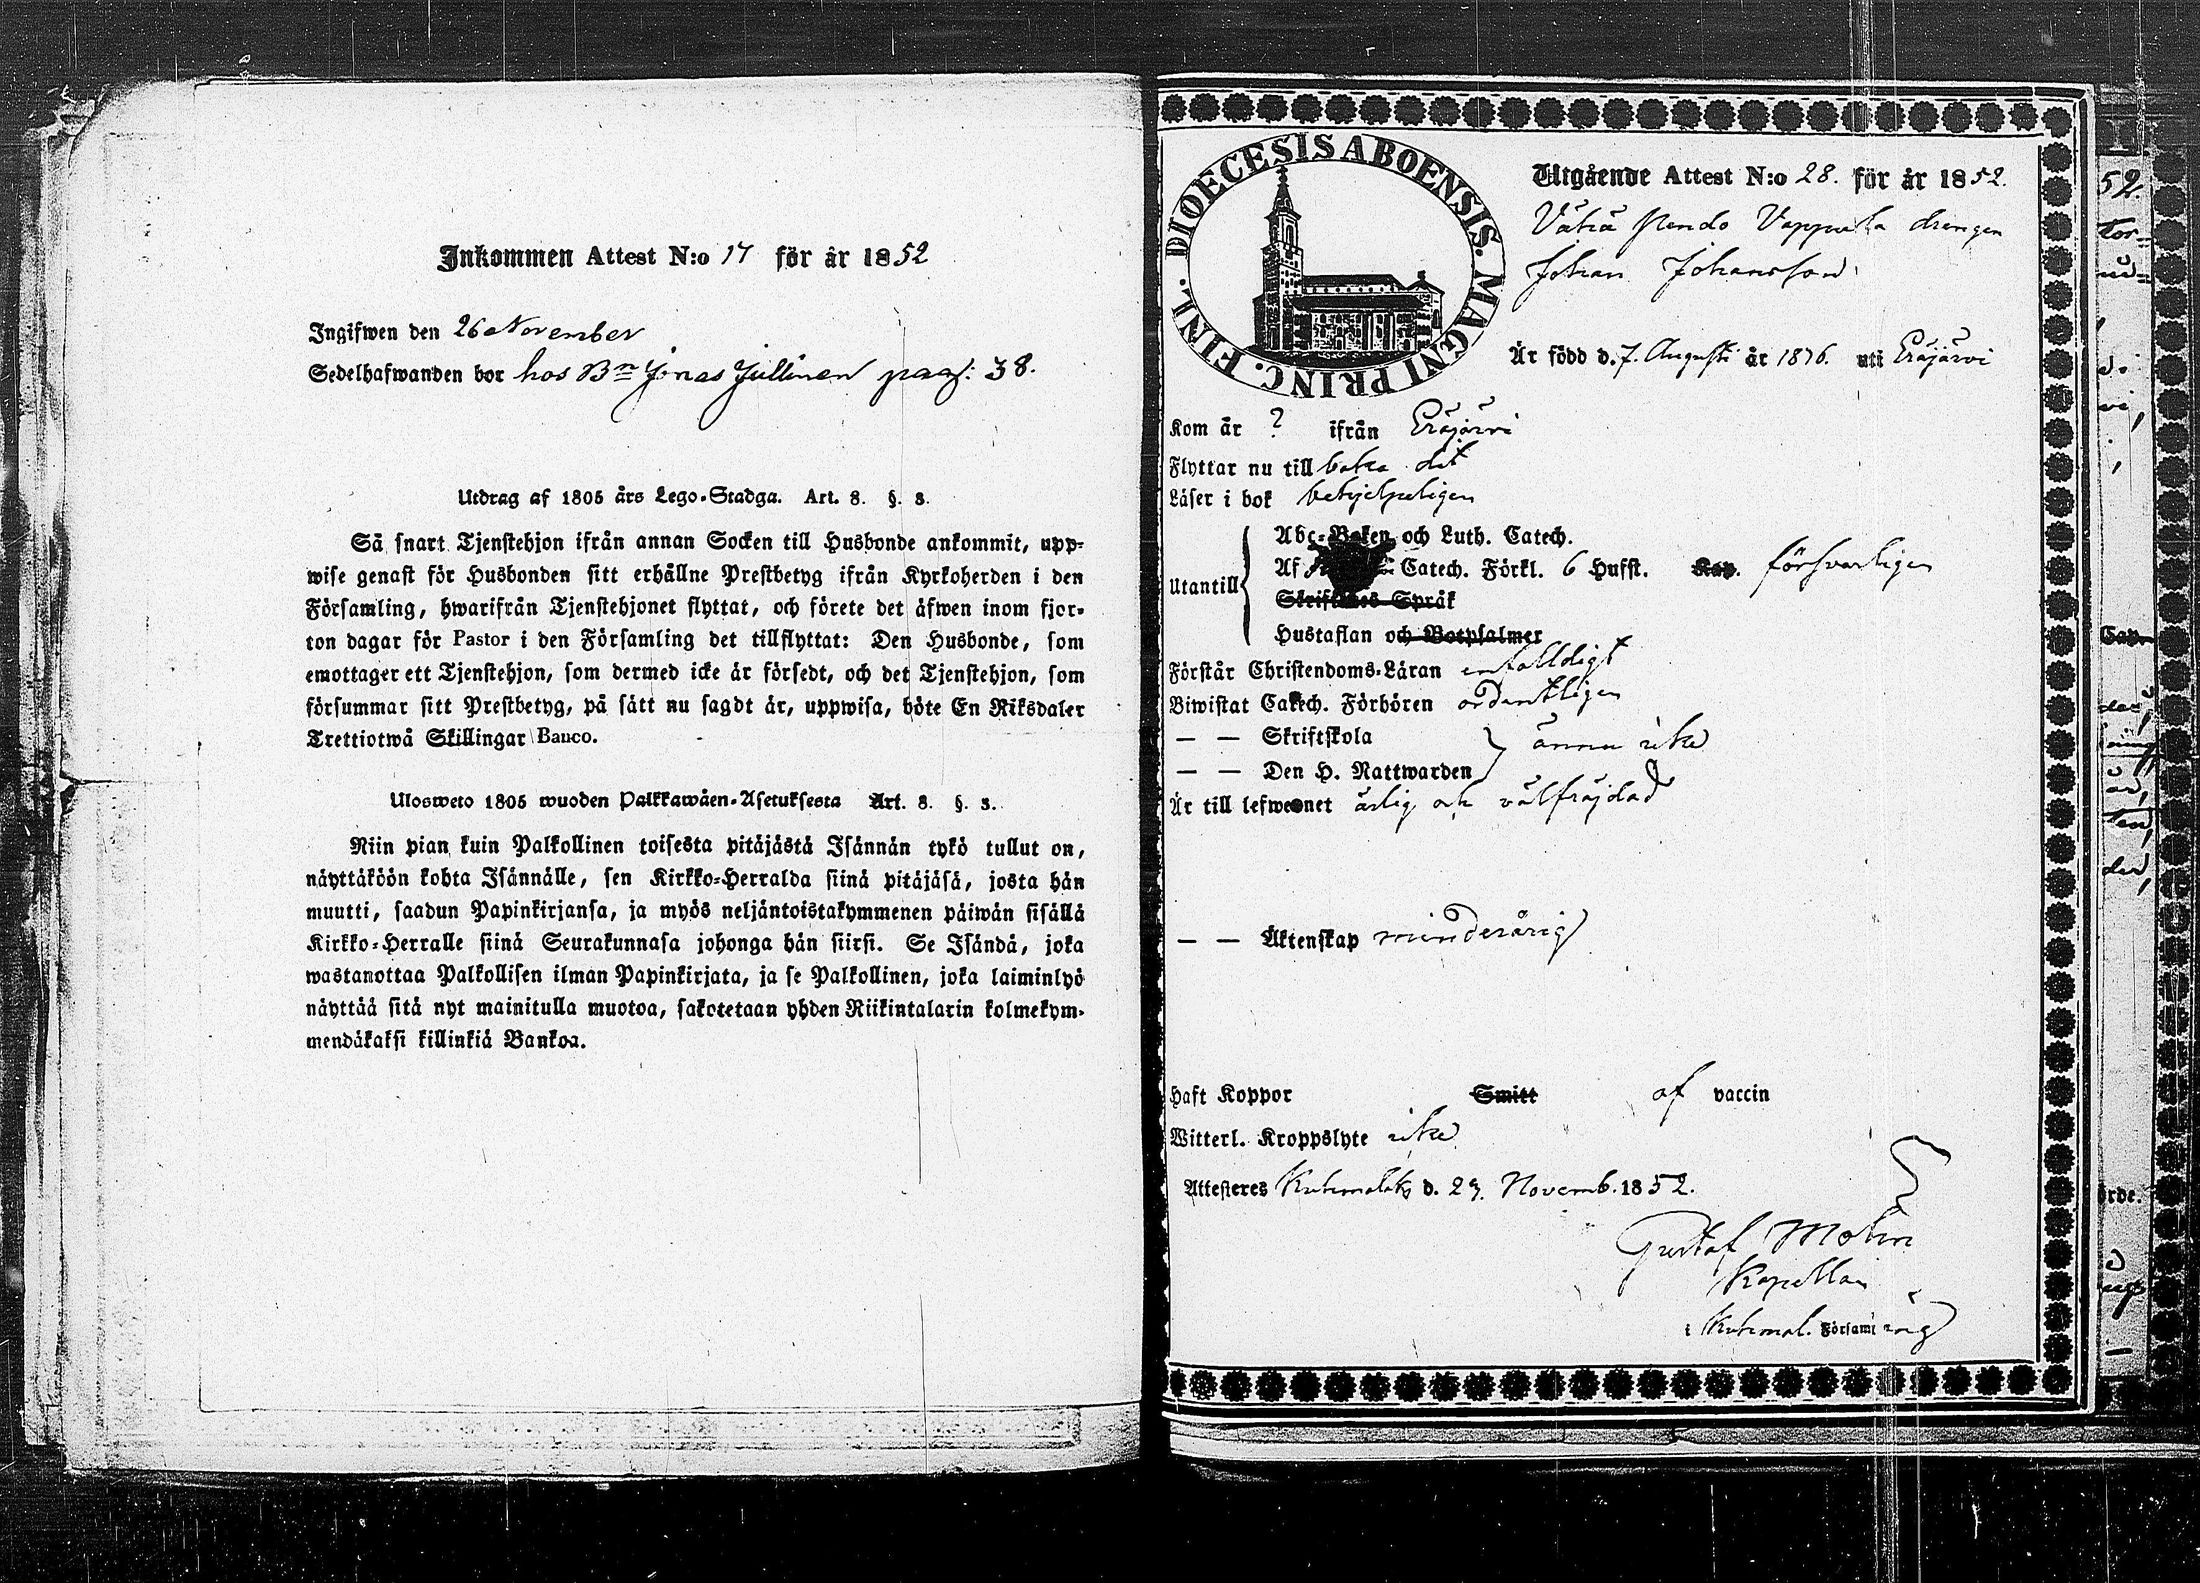 Inkommen Attest N:o 17 för år 1852
Ingifwen den 26 November
Sedelhafwanden bor hos Bn Jonas Jullinen pag: 38.
Utdrag af 1805 års Lego-Stadga. Art. 8. §. 3.
Så snart Tjenstehjon ifrån annan Socken till Husbonde ankommit, upp-
wise genast för Husbonden sitt erhållne Prestbetyg ifrån Kyrkoherden i den
Församling, hwarifrån Tjenstehjonet flyttat, och förete det äfwen inom fjor-
ton dagar för Pastor i den Församling det tillflyttat: Den Husbonde, som
emottager ett Tjenstehjon, som dermed icke är försedt, och det Tjenstehjon, som
försummar sitt Prestbetyg, på sätt nu sagdt är, uppwisa, böte En Riksdaler
Trettiotwå Skillingar Banco.
Ulosweto 1805 wuoden Palkkawäen-Asetuksesta Art. 8. §. 3.
Niin pian kuin Palkollinen toisesta pitäjästä Isännän tykö tullut on,
näyttäköön kohta Isännälle, sen Kirkko-Herralda siinä pitäjäsä, josta hän
muutti, saadun Papinkirjansa, ja myös neljäntoistakymmenen päiwän sisällä
Kirkko-Herralle siinä Seurakunnasa johonga hän siirsi. Se Isändä, joka
wastanottaa Palkollisen ilman Papinkirjata, ja se Palkollinen, joka laiminlyö
näyttää sitä nyt mainitulla muotoa, sakotetaan yhden Riikintalarin kolmekym-
mendäkaksi killinkiä Bankoa.
DIOECESIS ABOENSIS. MAGNI PRINC. FINL.
Utgående Attest N:o 28. för år 1852.
Vähä Pendo Vappula drengen
Johan Johansson
Är född d. 7. Augusti år 1836. uti Eräjärvi
Kom år ? ifrån Eräjärvi
Flyttar nu till baka dit
Läser i bok behjelpeligen
Utantill
Abc-Boken och Luth. Catech.
Af Catech. Förkl. 6 Hufst. Kap. försvarligen
Skriftenes Språk
Hustaflan och Botpsalmer
Förstår Christendoms-Läran enfalldigt
Biwistat Catech. Förhören ordentligen
— — Skriftskola
ännu icke
— — Den H. Nattwarden
Är till lefwernet ärlig och välfräjdad
— — Äktenskap minderårig
Haft Koppor Smitt af vaccin
Witterl. Kroppslyte icke
Attesteres Kuhmalaks d. 23. Novemb. 1852.
Gustaf Molin
Kapellan
i Kuhmal. Församling